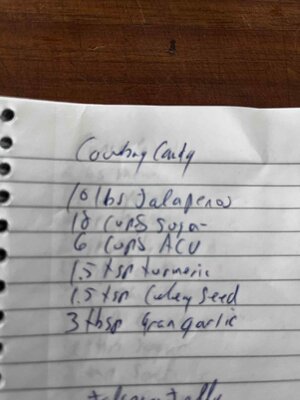 Cowboy Candy
10 lbs Jalapenos
18 cups sugar
6 cups ACV
1.5 tsp turmeric
1.5 tsp Celery Seed
3 tbsp Gran garlic